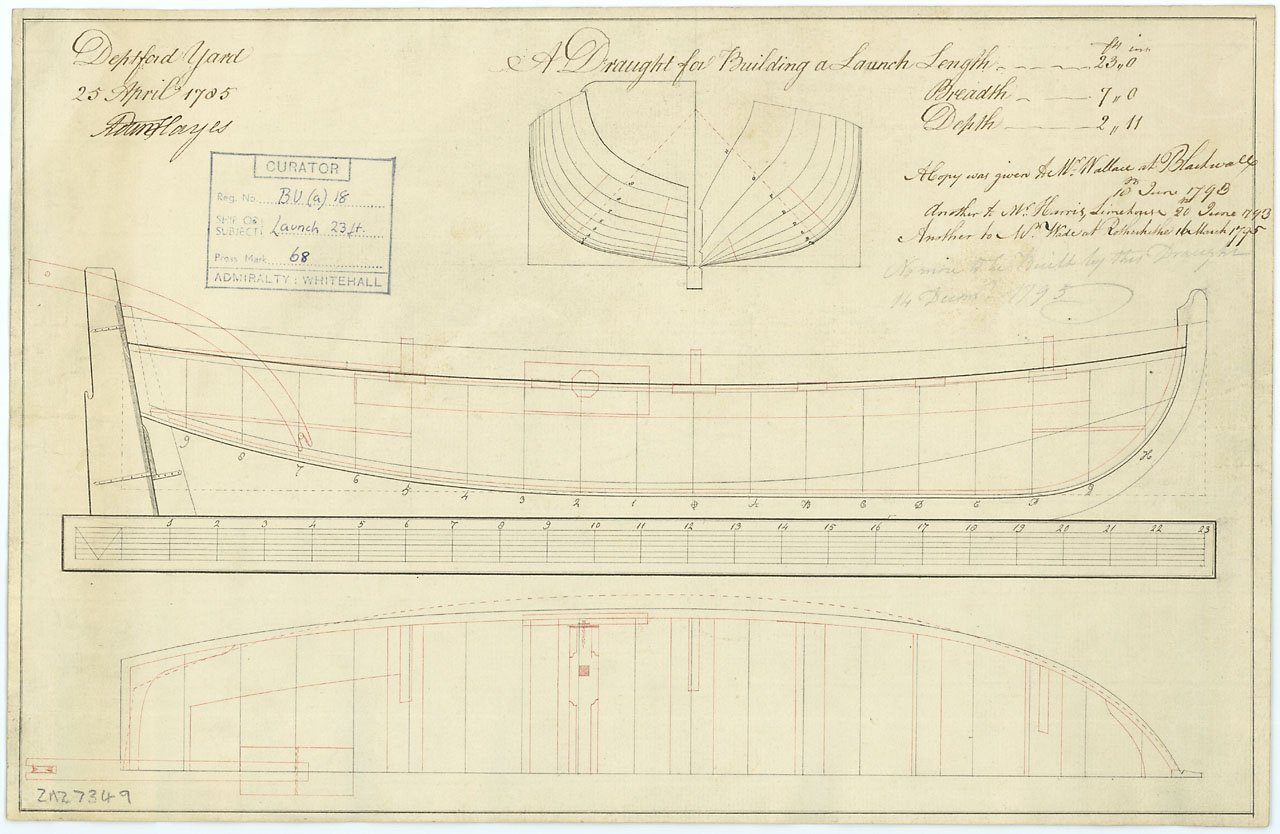 Deptford Yard
25 April 1785
Adam Hayes
A Draught for Building a Launch Length 23,,0
ft ins
Breadth 7,,0
Depth 2,,11
A Copy was given to Mr. Wallace at Blackwall
10th June 1793
Another to Mr. Hurris, Limehouse 20 June 1793
Another to Mr. Wade at Rotherhithe 16 March 1795
No more to be Built by this Draught
14 Decemr 1795
CURATOR
Reg. No. B.U (a) 18
SHIP OR SUBJECT: Launch 23 ft.
Press Mark 68
ADMIRALTY : WHITEHALL
9 8 7 6 5 4 3 2 1 A B C D E F G H
1 2 3 4 5 6 7 8 9 10 11 12 13 14 15 16 17 18 19 20 21 22 23
ZAZ7349